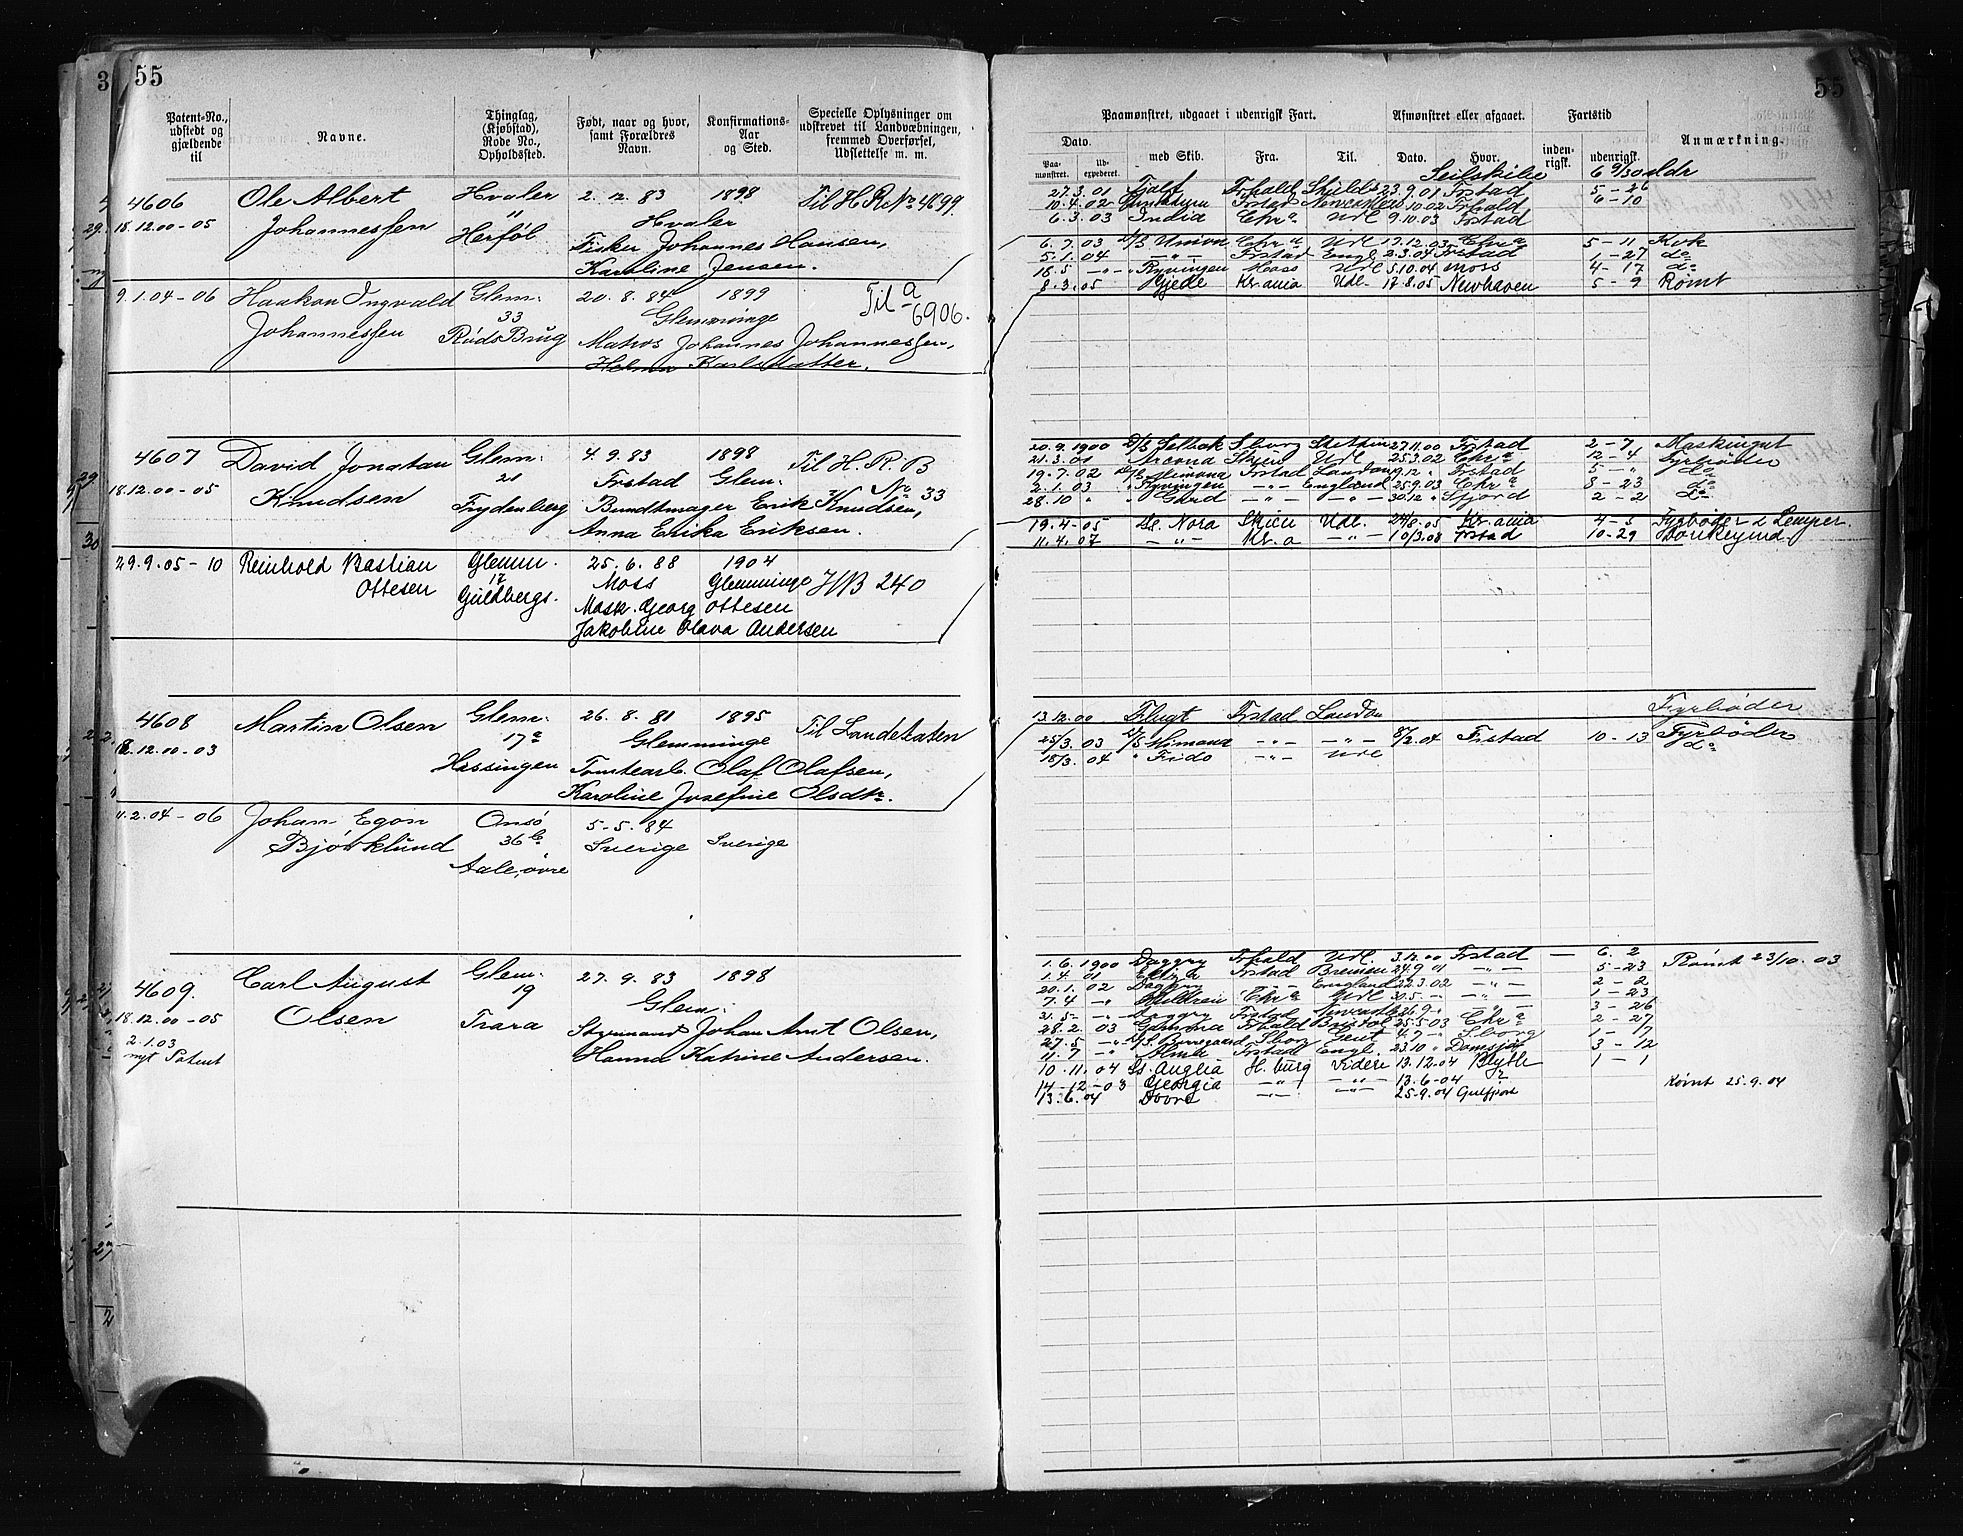 55
Patent-No., udstedt og gjældende til
Navne.
Thinglag, (Kjøbstad), Rode No., Opholdssted.
Født, naar og hvor, samt Forældres Navn.
Konfirmations-Aar og Sted.
Specielle Oplysninger om udskrevet til Landvæbningen, fremmed Overførsel, Udslettelse m. m.
4606
18.12.00-05
Ole Albert
Johannessen
Hvaler
"
Herføl
2. 12. 83 1898
Hvaler
Fisker Johannes Hansen,
Karoline Jensen.
Til H.R. No 4699.
9.1.04-06
Haakon Ingvald
Johannessen
Glem.
33
Røds Brug
20. 8. 84 1899
Glemminge
Matros Johannes Johannessen,
Helma Karlsdatter.
Til a 6906.
4607
18.12.00-05
David Jonatan
Knudsen
Glem.
21
Frydenberg
4. 9. 83 1898
Frstad Glem.
Bundtmager Erik Knudsen,
Anna Erika Eriksen.
Til H. R. B
No 33
29.9.05-10
Reinhold Bastian
Ottesen
Glemm.
17
Guldbergs.
25. 6. 88 1904
Moss Glemminge
Mask. Georg Ottesen
Jakobine Olava Andersen
HB 240
4608
18.12.00-03
Martin Olsen
Glem.
17a
Hassingen
26. 8. 81 1895
Glemminge
Tomtearb. Olaf Olafsen,
Karoline Josefine Olsdtr.
Til Landetaten
4.2.04-06
Johan Egon
Bjørklund
Onsø
36 b.
Aale, øvre
5-5. 84
Sverige Sverige
4609.
18.12.00-05
2.1.03
nyt Patent
Carl August
Olsen
Glem.
19
Trara
27. 9. 83 1898
Glem.
Styrmand Johan Arnt Olsen,
Hanna Katrine Andersen.
55
Paamønstret, udgaaet i udenrigsk Fart.
Afmønstret eller afgaaet.
Fartstid
Anmærkning.
Dato.
Paa-mønstret.
Ud-expederet.
med Skib.
Fra.
Til.
Dato.
Hvor.
inden-rigsk.
udenrigsk.
Seilskibe 6 9/30 ddr
27.3.01 Fjalf Frhald Shields 23.9.01 Frstad 5-26
10.4.02 Frstad Newcastle 10.02 Frhald 6-10
6.3.03 India Chr a Udl 9.10.03 Frstad
6.7.03 D/S Union Chr a Udl 17.12.03 Chr a 5-11 Kok
5.1.04 -"- Frstad Engl 2.3.04 Frstad 1-27 do
18.5 -"- " Ryvingen Moss Udl 5.10.04 Moss 4-17 do
8.3.05 " Hjede Kr.ania Udl. 17.8.05 Newhaven 5-9 Rømt
20.9.1900 D/S Selbak Sborg Stettin 27.11.00 Frstad 2-7 Maskingut
21.3.01 Ancona Skien Udl 25.3.02 Chr a 12-4 Fyrbøder
19.7.02 D/S Glimam Frstad London 19.12 " Frstad 5-" do
2.1.03 " Ryvingen -"- England 25.9.03 Chr a 8-23 do
28.10 " " Gerd -"- -"- 30.12 " Sfjord 2-2 do
19.4-05 Ss. Nora Skien Udl. 24/8.05 Kr.ania 4-5 Fyrbøder & Lemper.
11.4.07 -"- Kr.a -"- 10/3.08 Frstad 10-29 Donkeymd.
13.12.00 Flugt Frstad London Fyrbøder
25/3.03 D/S Mimona -"- -"- 8/2.04 Frstad 10-13 Fyrbøder
18/3.04 " Frido -"- Udl do
1.6.1900 Daggry Frhald Udl. 3.12.00 Frstad — 6. 2
1.4.01 Frstad Bremen 24.9.01 -"- 5-23 Rømt 23/10.03
20.1.02 Daggry -"- England 22.3.02 -"- 2-2
7.4 -"- Chr a Udl 20.5 - -"- 1-23
21.5- -"- Daggry Frstad Newcastle 26.9 - -"- 3-26
28.2.03 Gemma Frhald Bristol 25.5.03 Chr a 2-27
27.5 -"- D/S Borregaard Sborg Gent 4.7 -"- Sborg 1-7
11.7 -"- Alma Frstad Engl. 23.10 " Domsjø 3-12
10-11.04 Ss. Anglia H.burg Videre 13.12.04 Blyth 1-1
14-12-03 Georgia -"- -"- 13.6-04 ? Rømt 25.9.04
13.6.04 Dovre -"- -"- 25-9.04 Gulfport